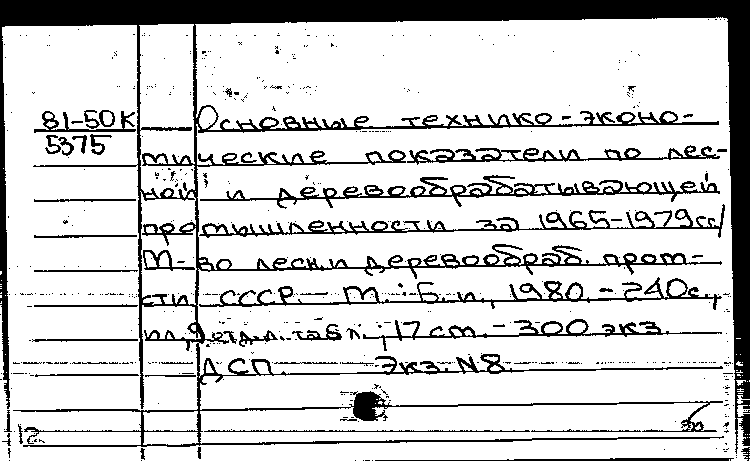 81-50К Основные технико-эконо-
5375
мические показатели по лес-
ной и деревообрабатывающей
промышленности за 1965-1979 гг/
М-во лесн. и деревообраб. пром-
сти СССР. - М. : Б. и., 1980. - 240 с.,
ил., 9 отд. л. табл. ; 17 см. - 300 экз.
ДСП. Экз. N8.
12